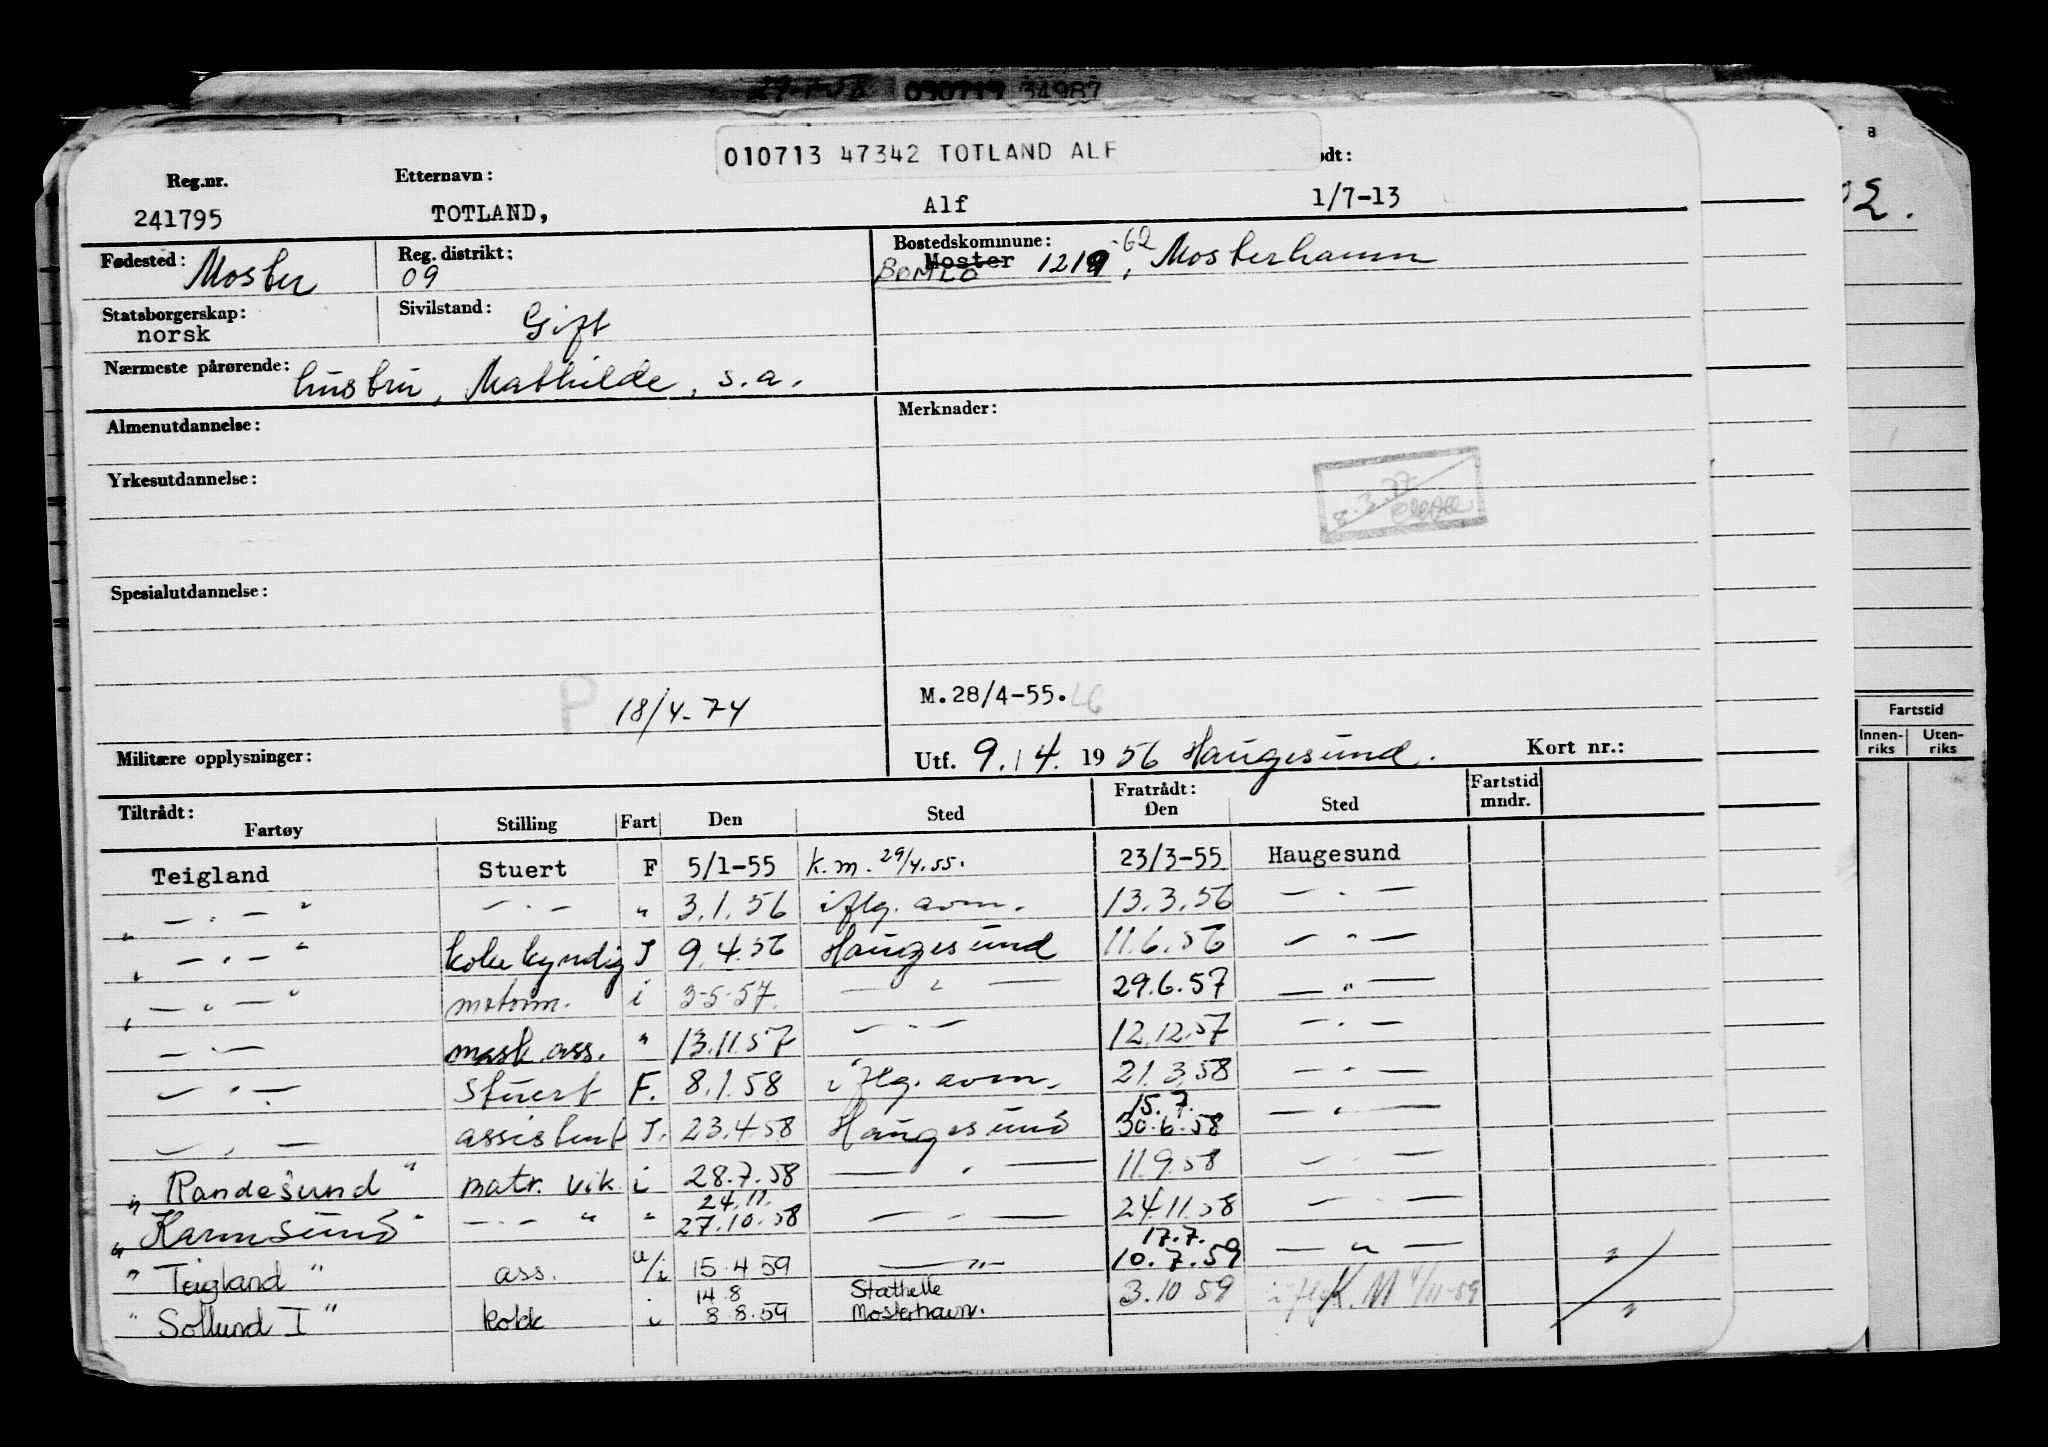 010713 34987
010713 47342 TOTLAND ALF
Reg.nr. Etternavn: ødt:
241795 TOTLAND, Alf 1/7-13
Fødested: Moster Reg. distrikt: 09 Bostedskommune: Moster 1219 -62, Mosterhamn
BØMLO
Statsborgerskap: norsk Sivilstand: Gift
Nærmeste pårørende: hustru, Mathilde, s.a.
Almenutdannelse: Merknader:
Yrkesutdannelse:
Spesialutdannelse:
P 18/4-74 M.28/4-55.
Militære opplysninger: Utf. 9./4. 1956 Haugesund. Kort nr.:
Tiltrådt: Fratrådt: Fartstid
Fartøy Stilling Fart Den Sted Den Sted mndr.
Teigland Stuert F 5/1-55 k.m. 29/4.55. 23/3-55 Haugesund
" — . — " — . — " 3.1.56 iflg. avm. 13.3.56 — . —
" — . — " kokekyndig I 9.4.56 Haugesund 11.6.56 — " —
" — " — " motorm. i 3-5-57. — " — 29.6.57 — " —
— . — mask.ass. " 13.11.57 — . — 12.12.57 — . —
— . — Stuert F. 8.1.58 iflg. avm. 21.3.58 — . —
15.7.
— . — assistent I. 23.4.58 Haugesund 30.6.58 — . —
" Randesund " matr. vik i 28.7.58 — . — 11.9.58 — . —
24.11.
" Karmsund " — . — " " 27.10.58 — . — 24.11.58 — . —
17.7.
" Teigland " ass. u/i 15.4.59 — " — 10.7.59 — " — "
14.8 Stathelle
" Sollund I " kokk i 8.8.59 Mosterhavn. 3.10.59 iflg K.M 4/11-59 "
02.
Fartstid
Innen-riks Uten-riks